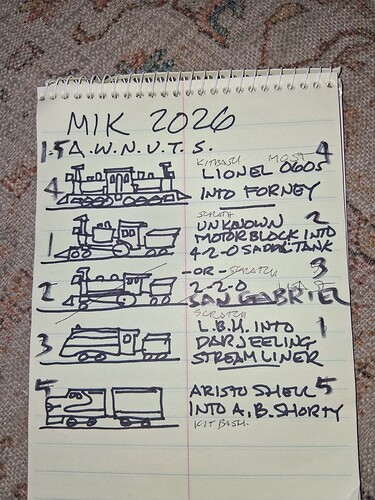 MIK 2026
1-5 A.W.N.U.T.S.
KITBASH MOST 4
4 LIONEL 0605
INTO FORNEY
SCRATCH
1 UNKNOWN 2
MOTORBLOCK INTO
4-2-0 SADDLE TANK
-OR- SCRATCH 3
2 2-2-0
SAN GABRIEL
SCRATCH
3 L.B.H. INTO 1
DARJEELING
STREAMLINER
5 ARISTO SHELL 5
INTO A.B. SHORTY
KITBASH